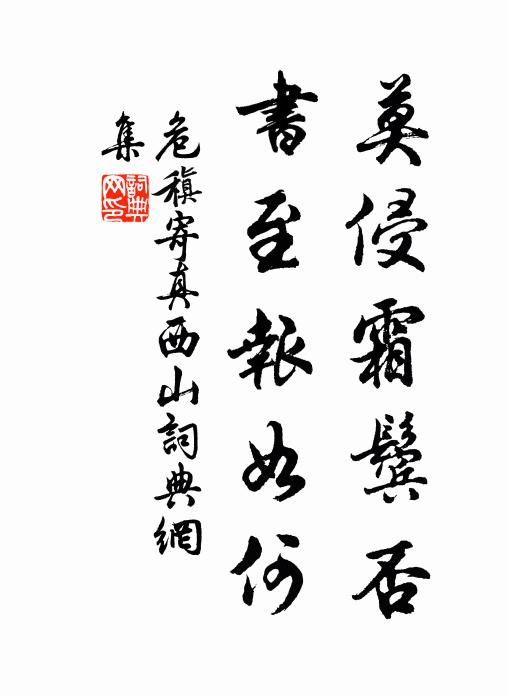 莫侵霜鬢否
書至報如何
危稹寄真西山詞典網
集
詞典
网印